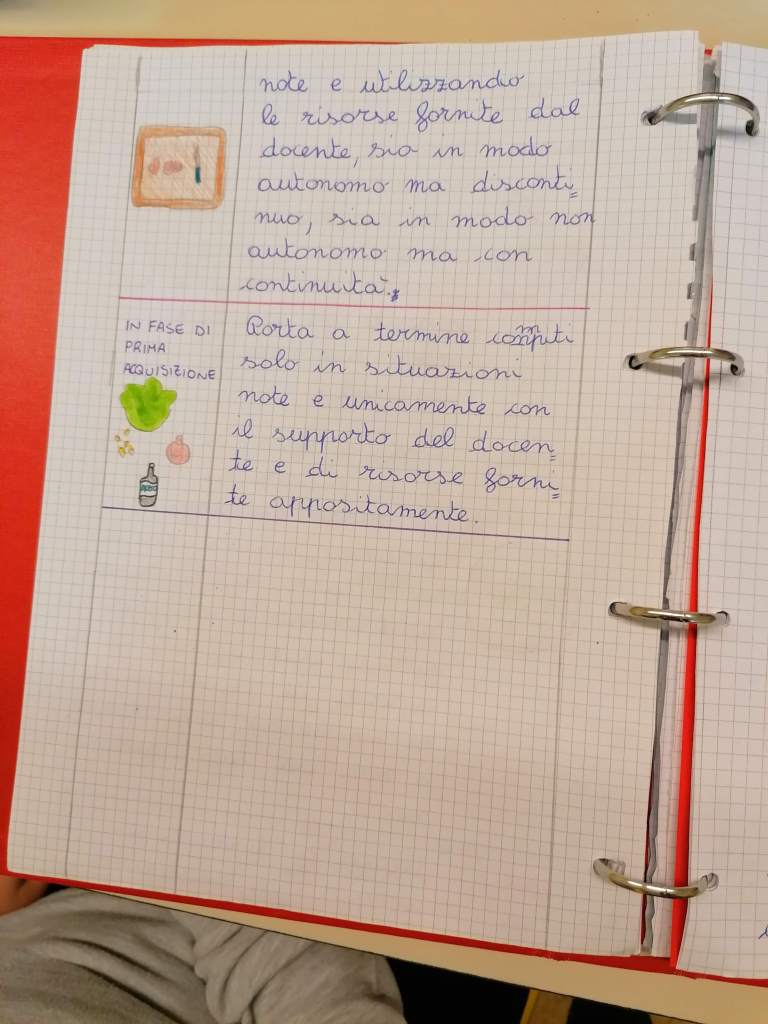 note e utilizzando
le risorse fornite dal
docente, sia in modo
autonomo ma disconti=
nuo, sia in modo non
autonomo ma con
continuità.
IN FASE DI
PRIMA
ACQUISIZIONE
Porta a termine compiti
solo in situazioni
note e unicamente con
il supporto del docen=
te e di risorse forni=
te appositamente.